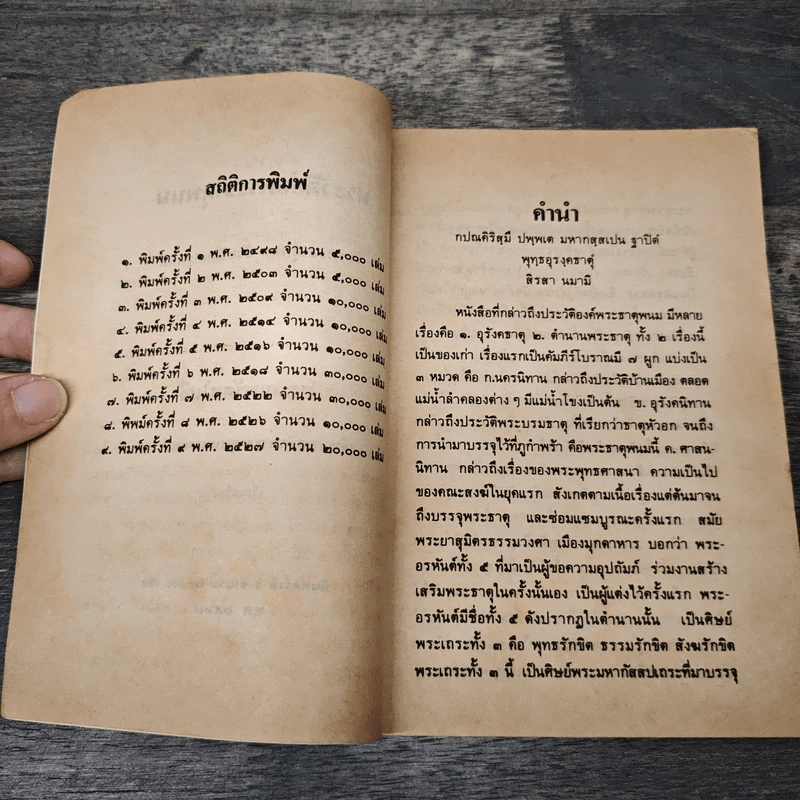 สถิติการพิมพ์
๑. พิมพ์ครั้งที่ ๑ พ.ศ. ๒๔๙๘ จำนวน ๕,๐๐๐ เล่ม
๒. พิมพ์ครั้งที่ ๒ พ.ศ. ๒๕๐๓ จำนวน ๕,๐๐๐ เล่ม
๓. พิมพ์ครั้งที่ ๓ พ.ศ. ๒๕๐๙ จำนวน ๑๐,๐๐๐ เล่ม
๔. พิมพ์ครั้งที่ ๔ พ.ศ. ๒๕๑๔ จำนวน ๑๐,๐๐๐ เล่ม
๕. พิมพ์ครั้งที่ ๕ พ.ศ. ๒๕๑๖ จำนวน ๑๐,๐๐๐ เล่ม
๖. พิมพ์ครั้งที่ ๖ พ.ศ. ๒๕๑๘ จำนวน ๓๐,๐๐๐ เล่ม
๗. พิมพ์ครั้งที่ ๗ พ.ศ. ๒๕๒๒ จำนวน ๓๐,๐๐๐ เล่ม
๘. พิพม์ครั้งที่ ๘ พ.ศ. ๒๕๒๖ จำนวน ๑๐,๐๐๐ เล่ม
๙. พิมพ์ครั้งที่ ๙ พ.ศ. ๒๕๒๗ จำนวน ๒๐,๐๐๐ เล่ม
คำนำ
กปณคิริสฺมึ ปพฺพเต มหากสฺสเปน ฐาปิตํ
พุทฺธอุรงฺคธาตุํ
สิรสา นมามิ
หนังสือที่กล่าวถึงประวัติองค์พระธาตุพนม มีหลาย
เรื่องคือ ๑. อุรังคธาตุ ๒. ตำนานพระธาตุ ทั้ง ๒ เรื่องนี้
เป็นของเก่า เรื่องแรกเป็นคัมภีร์โบราณมี ๗ ผูก แบ่งเป็น
๓ หมวด คือ ก.นครนิทาน กล่าวถึงประวัติบ้านเมือง ตลอด
แม่น้ำลำคลองต่าง ๆ มีแม่น้ำโขงเป็นต้น ข. อุรังคนิทาน
กล่าวถึงประวัติพระบรมธาตุ ที่เรียกว่าธาตุหัวอก จนถึง
การนำมาบรรจุไว้ที่ภูกำพร้า คือพระธาตุพนมนี้ ค. ศาสน-
นิทาน กล่าวถึงเรื่องของพระพุทธศาสนา ความเป็นไป
ของคณะสงฆ์ในยุคแรก สังเกตตามเนื้อเรื่องแต่ต้นมาจน
ถึงบรรจุพระธาตุ และซ่อมแซมบูรณะครั้งแรก สมัย
พระยาสุมิตรธรรมวงศา เมืองมุกดาหาร บอกว่า พระ-
อรหันต์ทั้ง ๕ ที่มาเป็นผู้ขอความอุปถัมภ์ ร่วมงานสร้าง
เสริมพระธาตุในครั้งนั้นเอง เป็นผู้แต่งไว้ครั้งแรก พระ-
อรหันต์มีชื่อทั้ง ๕ ดังปรากฏในตำนานนั้น เป็นศิษย์
พระเถระทั้ง ๓ คือ พุทธรักขิต ธรรมรักขิต สังฆรักขิต
พระเถระทั้ง ๓ นี้ เป็นศิษย์พระมหากัสสปเถระที่มาบรรจุ